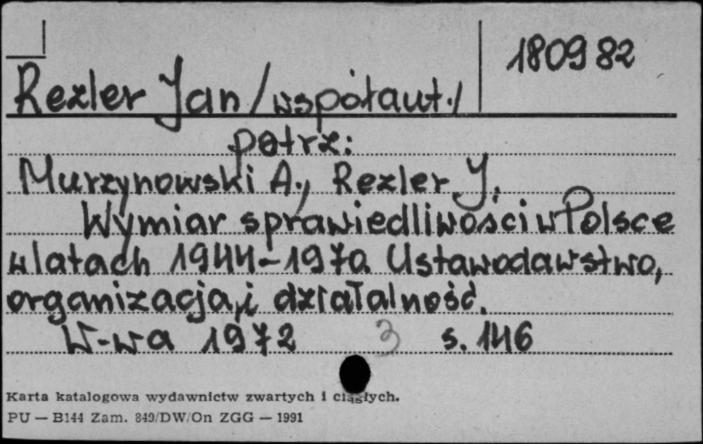 180982
Rezler Jan /współaut./
patrz:
Murzynowski A., Rezler J.
Wymiar sprawiedliwości w Polsce
w latach 1944-1970. Ustawodawstwo,
organizacja, i działalność.
W-wa 1972 3 s. 146
Karta katalogowa wydawnictw zwartych i ciągłych.
PU — B144 Zam. 849/DW/On ZGG — 1991